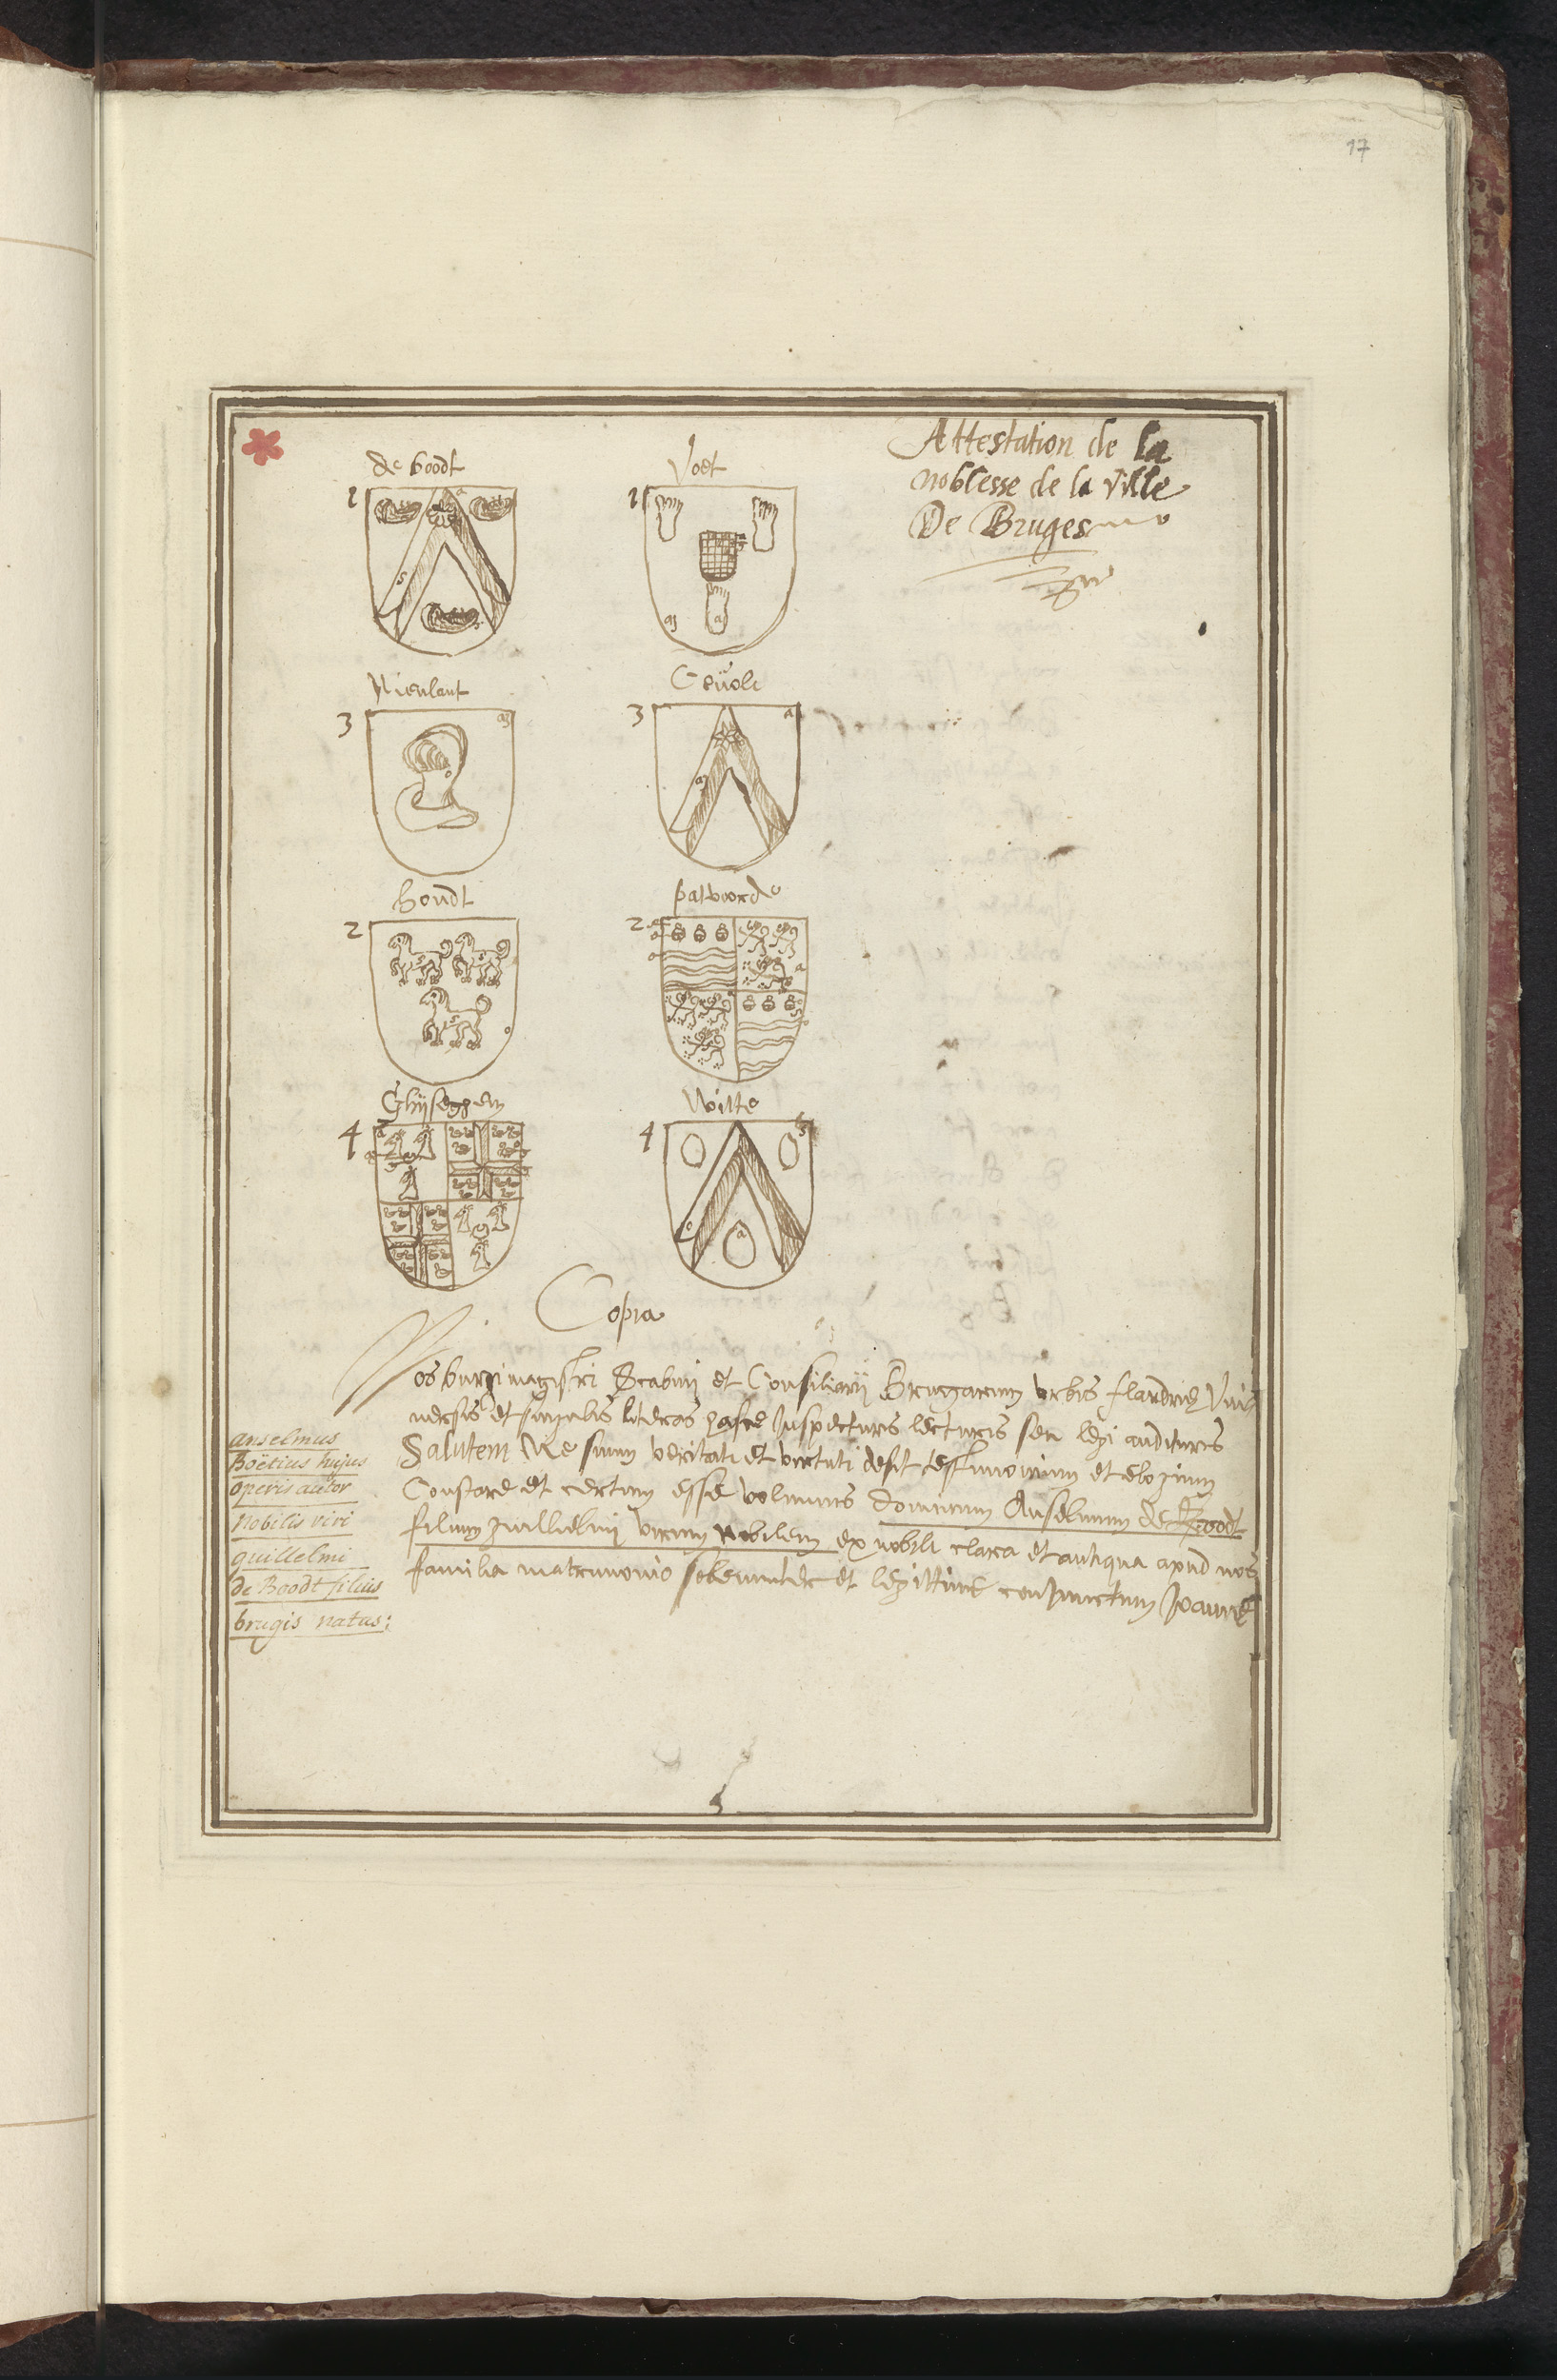 17
Attestation de la
noblesse de la ville
De Bruges
de boodt
Voet
1
1
Nieulant
Gevole
3
3
houdt
patvoorde
2
2
Ghyseghem
Witte
4
4
Copia
Nos burgimagistri Scabini et Consiliarij Brugarum urbis flandriæ Vni
uersis et singulis literas hasce Inspecturis lecturis seu legi audituris
Salutem Ne suum veritati et virtuti desit testimonium et elogium
Constare et certum esse volumus dominum Anselmum de Boodt
filium guillielmij virum nobilem ex nobili clara et antiqua apud nos
familia matrimonio solemniter et legittime conjunctum Joannæ
anselmus
Boëtius hujus
operis autor
nobilis viri
guillelmi
de Boodt filius
brugis natus: